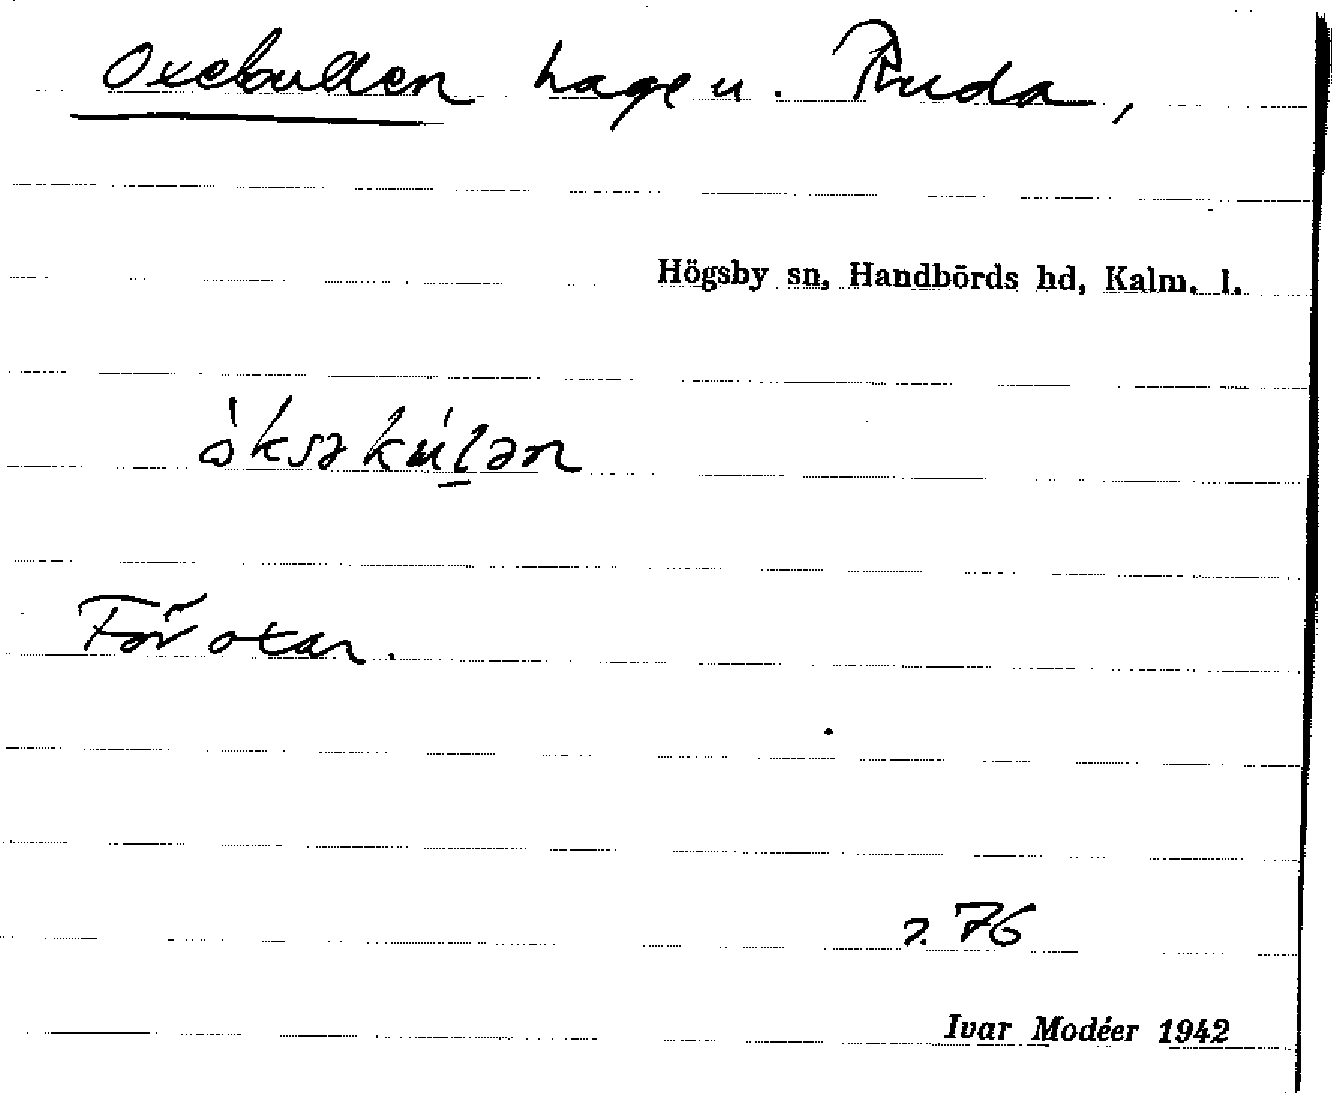 Oxekullen hage u. Ruda,
Högsby sn, Handbörds hd, Kalm. l.
òksəkúlən
För oxar.
s. 76
Ivar Modéer 1942